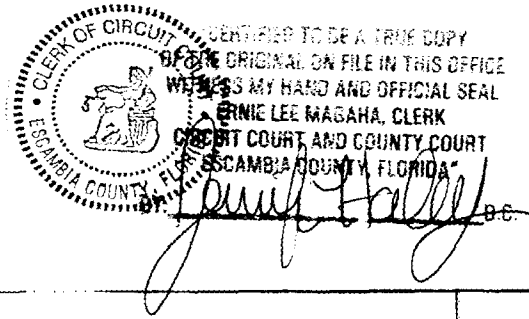 CLERK OF CIRCUIT
ESCAMBIA COUNTY, FLORIDA
"CERTIFIED TO BE A TRUE COPY
OF THE ORIGINAL ON FILE IN THIS OFFICE
WITNESS MY HAND AND OFFICIAL SEAL
ERNIE LEE MAGAHA, CLERK
CIRCUIT COURT AND COUNTY COURT
ESCAMBIA COUNTY, FLORIDA"
BY: D.C.